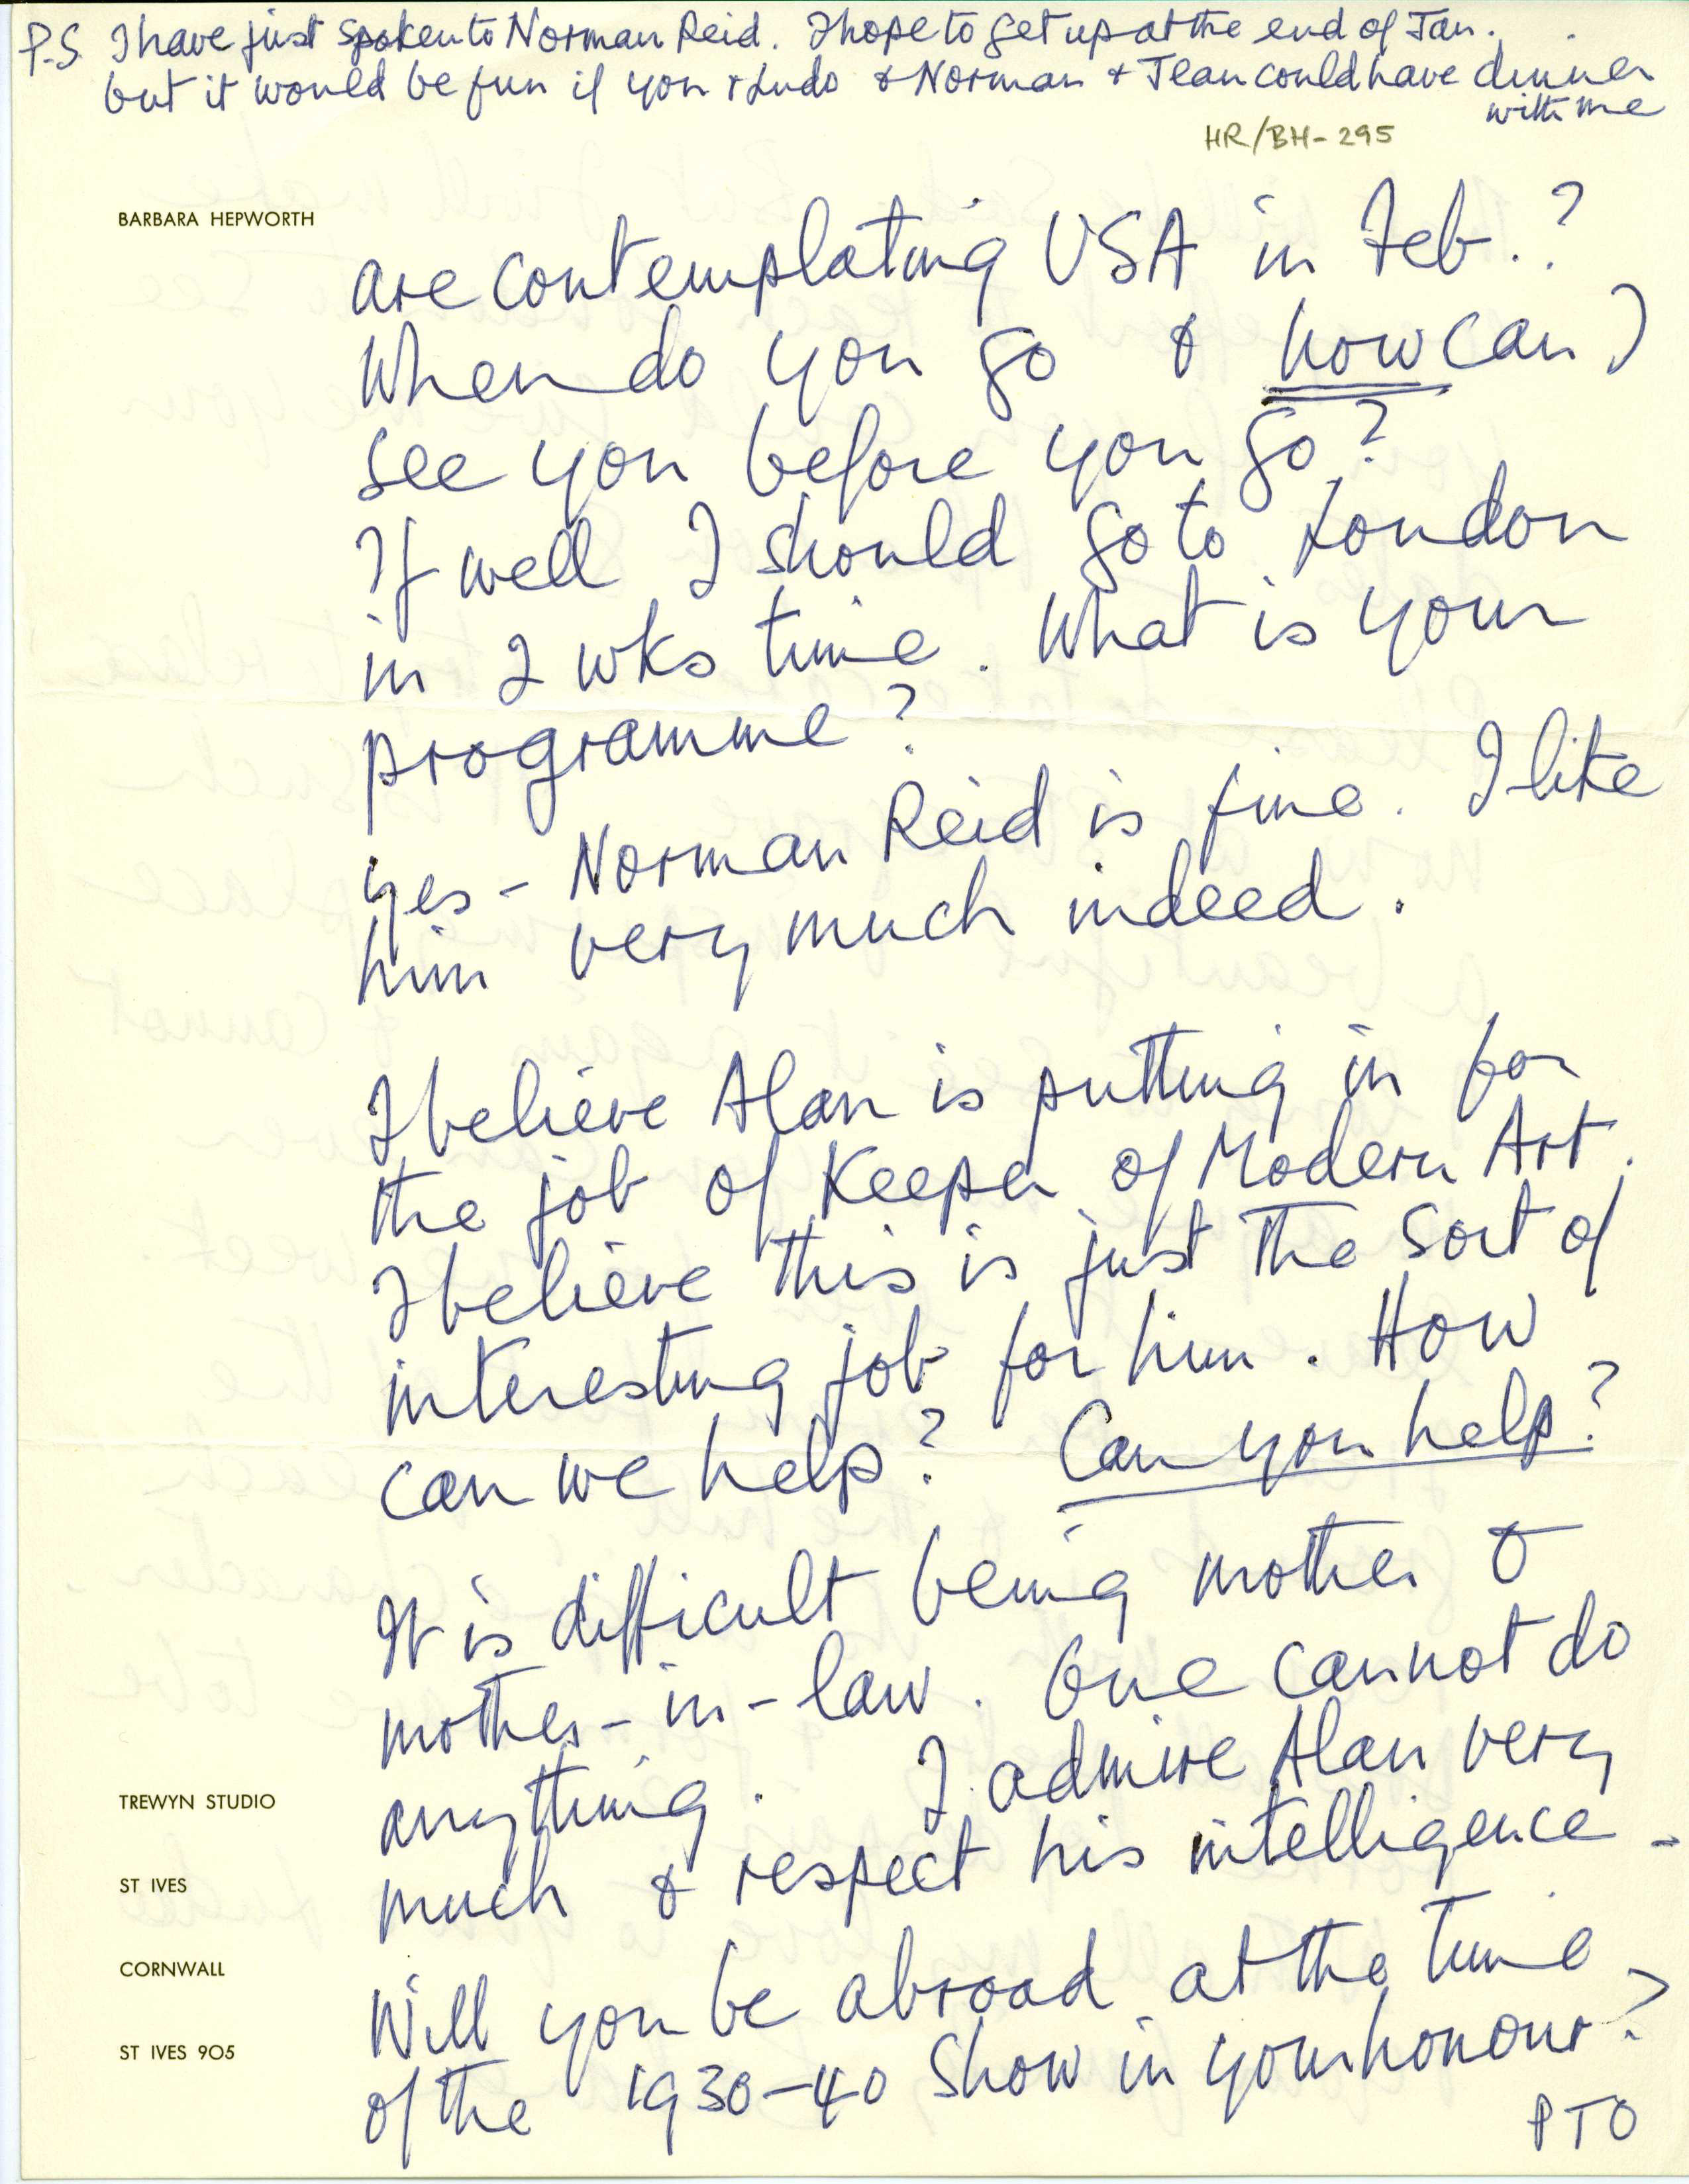 P.S. I have just spoken to Norman Reid. I hope to get up at the end of Jan.
but it would be fun if you & Ludo & Norman & Jean could have dinner
with me
HR/BH-295
BARBARA HEPWORTH
are contemplating USA in Feb.?
When do you go & how can I
see you before you go?
If well I should go to London
in 2 wks time. What is your
programme?
Yes - Norman Reid is fine. I like
him very much indeed.
I believe Alan is putting in for
the job of Keeper of Modern Art.
I believe this is just the sort of
interesting job for him. How
can we help? Can you help?
It is difficult being mother &
mother-in-law. One cannot do
anything. I admire Alan very
much & respect his intelligence -
Will you be abroad at the time
of the 1930-40 Show in your honour?
PTO
TREWYN STUDIO
ST IVES
CORNWALL
ST IVES 905